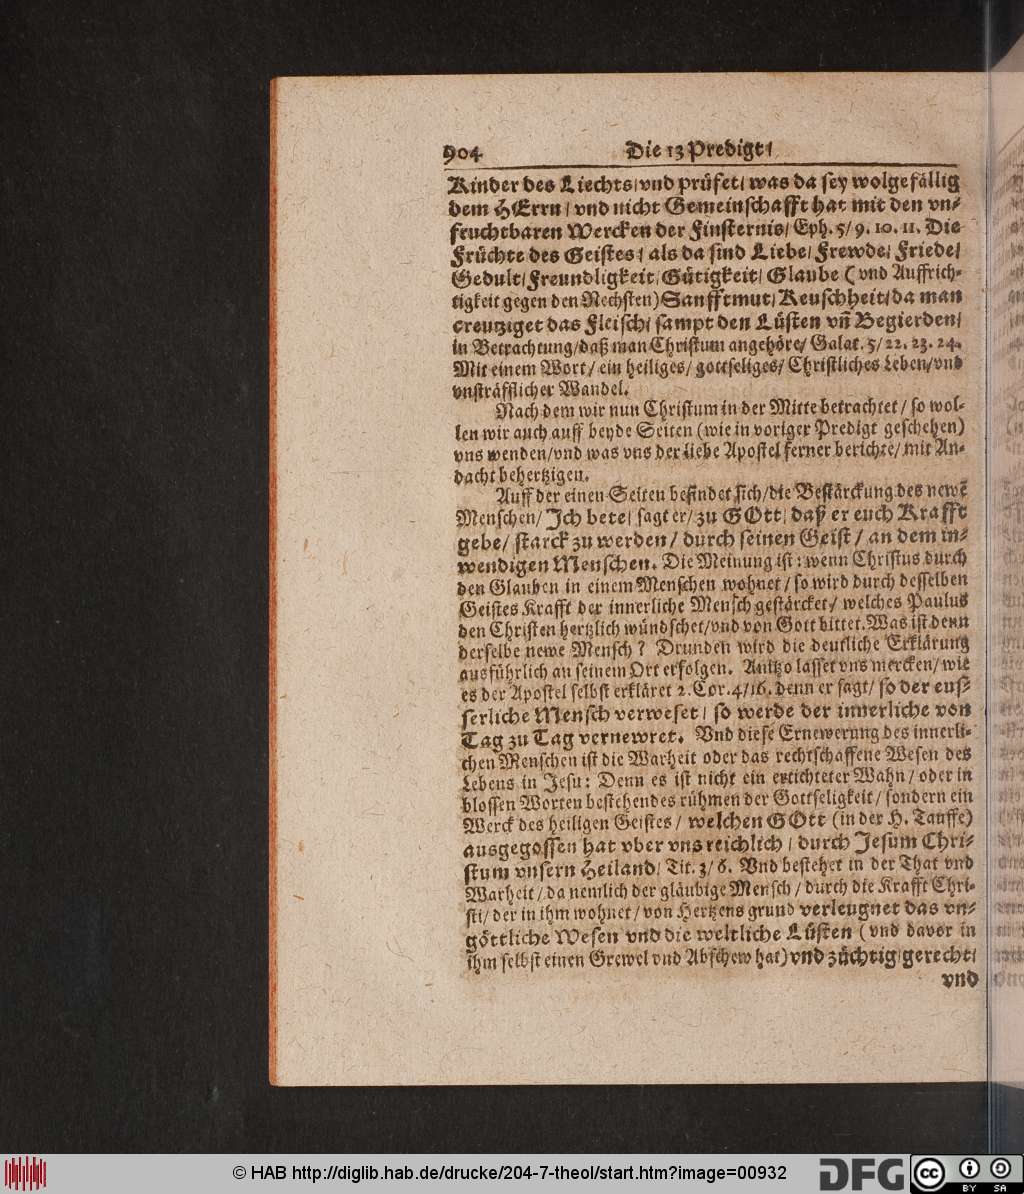 904 Die 13 Predigt/
Kinder des Liechts/vnd prüfet/ was da sey wolgefällig
dem HErrn/ vnd nicht Gemeinschafft hat mit den vn-
fruchtbaren Wercken der Finsternis/ Eph. 5/ 9. 10. 11. Die
Früchte des Geistes/ als da sind Liebe/ Frewde/ Friede/
Gedult/ Freundligkeit/ Gütigkeit/ Glaube ( vnd Auffrich-
tigkeit gegen den Nechsten) Sanfftmut/ Keuschheit/ da man
creutziget das Fleisch/ sampt den Lüsten vñ Begierden/
in Betrachtung/ daß man Christum angehöre/ Galat. 5/ 22. 23. 24.
Mit einem Wort/ ein heiliges/ gottseliges/ Christliches Leben/ vnd
vnsträfflicher Wandel.
Nach dem wir nun Christum in der Mitte betrachtet/ so wol-
len wir auch auff beyde Seiten (wie in voriger Predigt geschehen)
vns wenden/ vnd was vns der liebe Apostel ferner berichte/ mit An-
dacht behertzigen.
Auff der einen Seiten befindet sich/ die Bestärckung des newẽ
Menschen/ Ich bete/ sagt er/ zu GOtt/ daß er euch Krafft
gebe/ starck zu werden/ durch seinen Geist/ an dem in-
wendigen Menschen. Die Meinung ist: wenn Christus durch
den Glauben in einem Menschen wohnet/ so wird durch desselben
Geistes Krafft der innerliche Mensch gestärcket/ welches Paulus
den Christen hertzlich wündschet/ vnd von Gott bittet. Was ist denn
derselbe newe Mensch? Drunden wird die deutliche Erklärung
ausführlich an seinem Ort erfolgen. Anitzo lasset vns mercken/ wie
es der Apostel selbst erkläret 2. Cor. 4/ 16. denn er sagt/ so der eus-
serliche Mensch verweset/ so werde der innerliche von
Tag zu Tag vernewret. Vnd diese Ernewerung des innerli-
chen Menschen ist die Warheit oder das rechtschaffene Wesen des
Lebens in Jesu: Denn es ist nicht ein ertichteter Wahn/ oder in
blossen Worten bestehendes rühmen der Gottseligkeit/ sondern ein
Werck des heiligen Geistes/ welchen GOtt (in der H. Tauffe)
ausgegossen hat vber vns reichlich/ durch Jesum Chri-
stum vnsern Heiland/ Tit. 3/ 6. Vnd bestehet in der That vnd
Warheit/ da nemlich der gläubige Mensch/ durch die Krafft Chri-
sti/ der in ihm wohnet/ von Hertzens grund verleugnet das vn-
göttliche Wesen vnd die weltliche Lüsten (vnd davor in
ihm selbst einen Grewel vnd Abschew hat) vnd züchtig/ gerecht/
vnd
© HAB http://diglib.hab.de/drucke/204-7-theol/start.htm?image=00932
DFG
cc BY SA